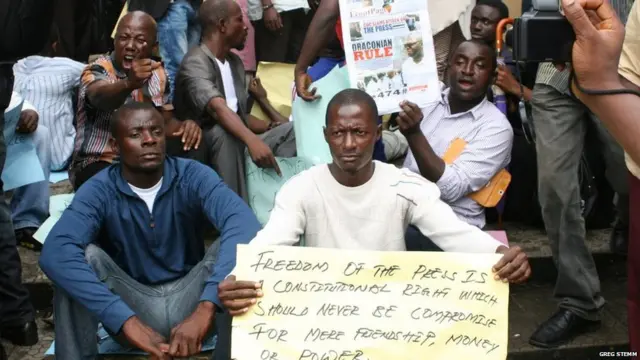 DRACONIAN
RULE
FREEDOM OF THE PRESS IS
A CONSTITUTIONAL RIGHT WHICH
SHOULD NEVER BE COMPROMISE
FOR MERE FRIENDSHIP, MONEY
OR POWER.
GREG STEMM